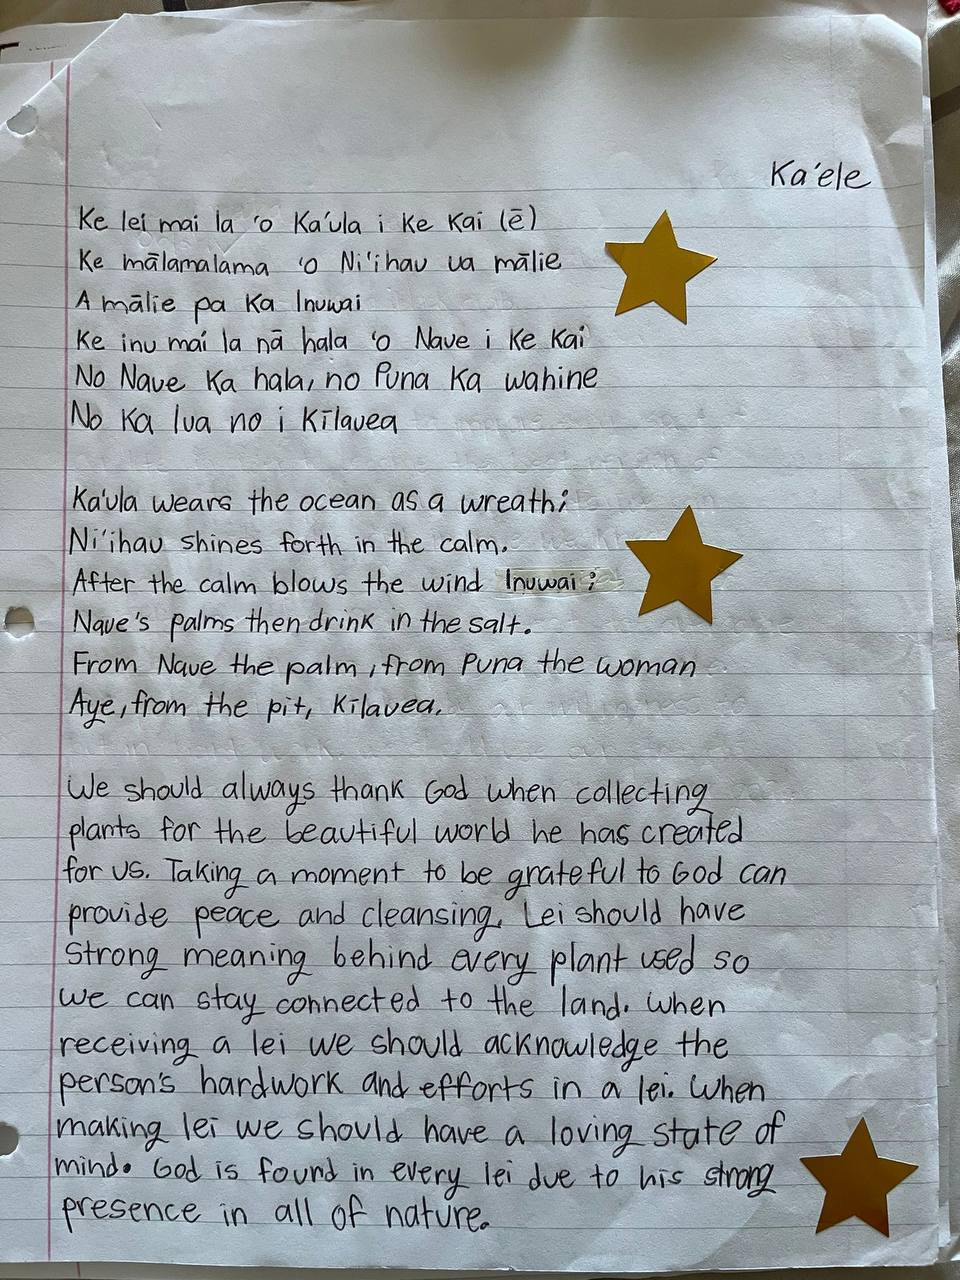 Ka'ele
Ke lei mai la 'o Ka'ula i ke kai (ē)
Ke mālamalama 'o Ni'ihau ua mālie
A mālie pa ka Inuwai
Ke inu mai la nā hala 'o Naue i ke kai
No Naue ka hala, no Puna ka wahine
No ka lua no i Kīlauea
Ka'ula wears the ocean as a wreath;
Ni'ihau shines forth in the calm.
After the calm blows the wind Inuwai;
Naue's palms then drink in the salt.
From Naue the palm, from Puna the woman
Aye, from the pit, Kīlauea.
We should always thank God when collecting
plants for the beautiful world he has created
for us. Taking a moment to be grateful to God can
provide peace and cleansing. Lei should have
strong meaning behind every plant used so
we can stay connected to the land. When
receiving a lei we should acknowledge the
person's hardwork and efforts in a lei. When
making lei we should have a loving state of
mind. God is found in every lei due to his strong
presence in all of nature.